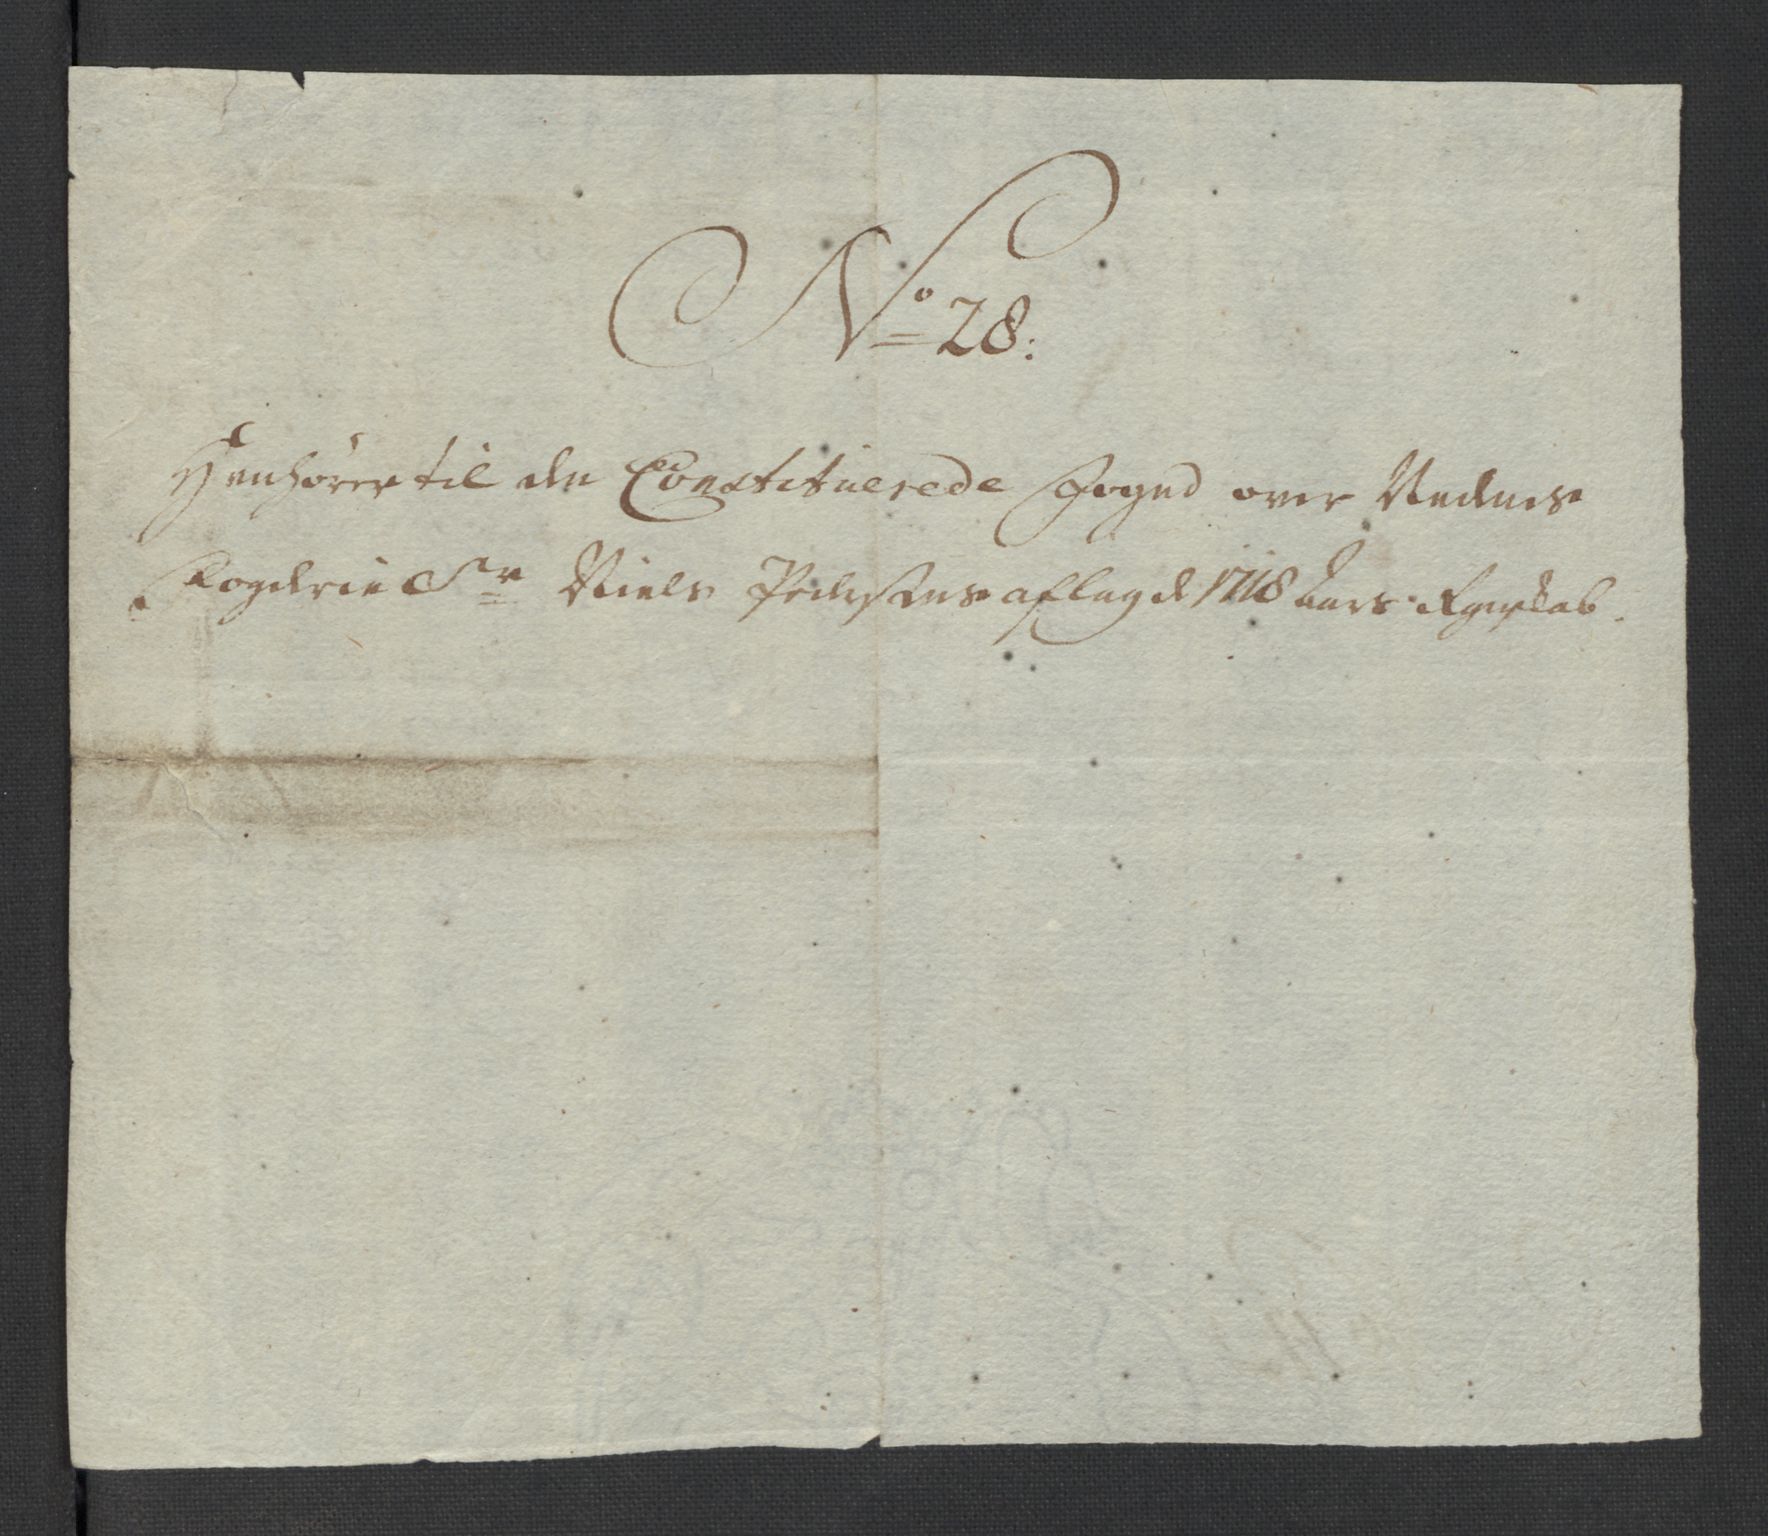 No 28:
Henhører til den Constituerede Fogud over Nednes
Fogderie Sr Niels Pedersens aflagde 1718 Aars Regenskab.